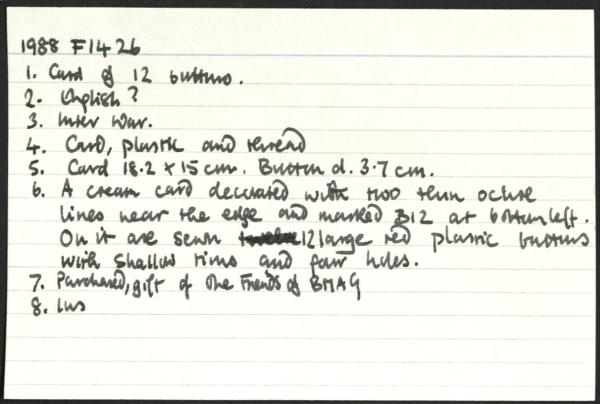 1988 F1426
1. Card of 12 buttons.
2. English?
3. Inter War.
4. Card, plastic and thread
5. Card 18.2 x 15 cm. Button d. 3.7 cm.
6. A cream card decorated with two thin ochre
lines near the edge and marked B12 at bottom left.
On it are sewn 12 large red plastic buttons
with shallow rims and four holes.
7. Purchased, gift of the Friends of BMAG
8.